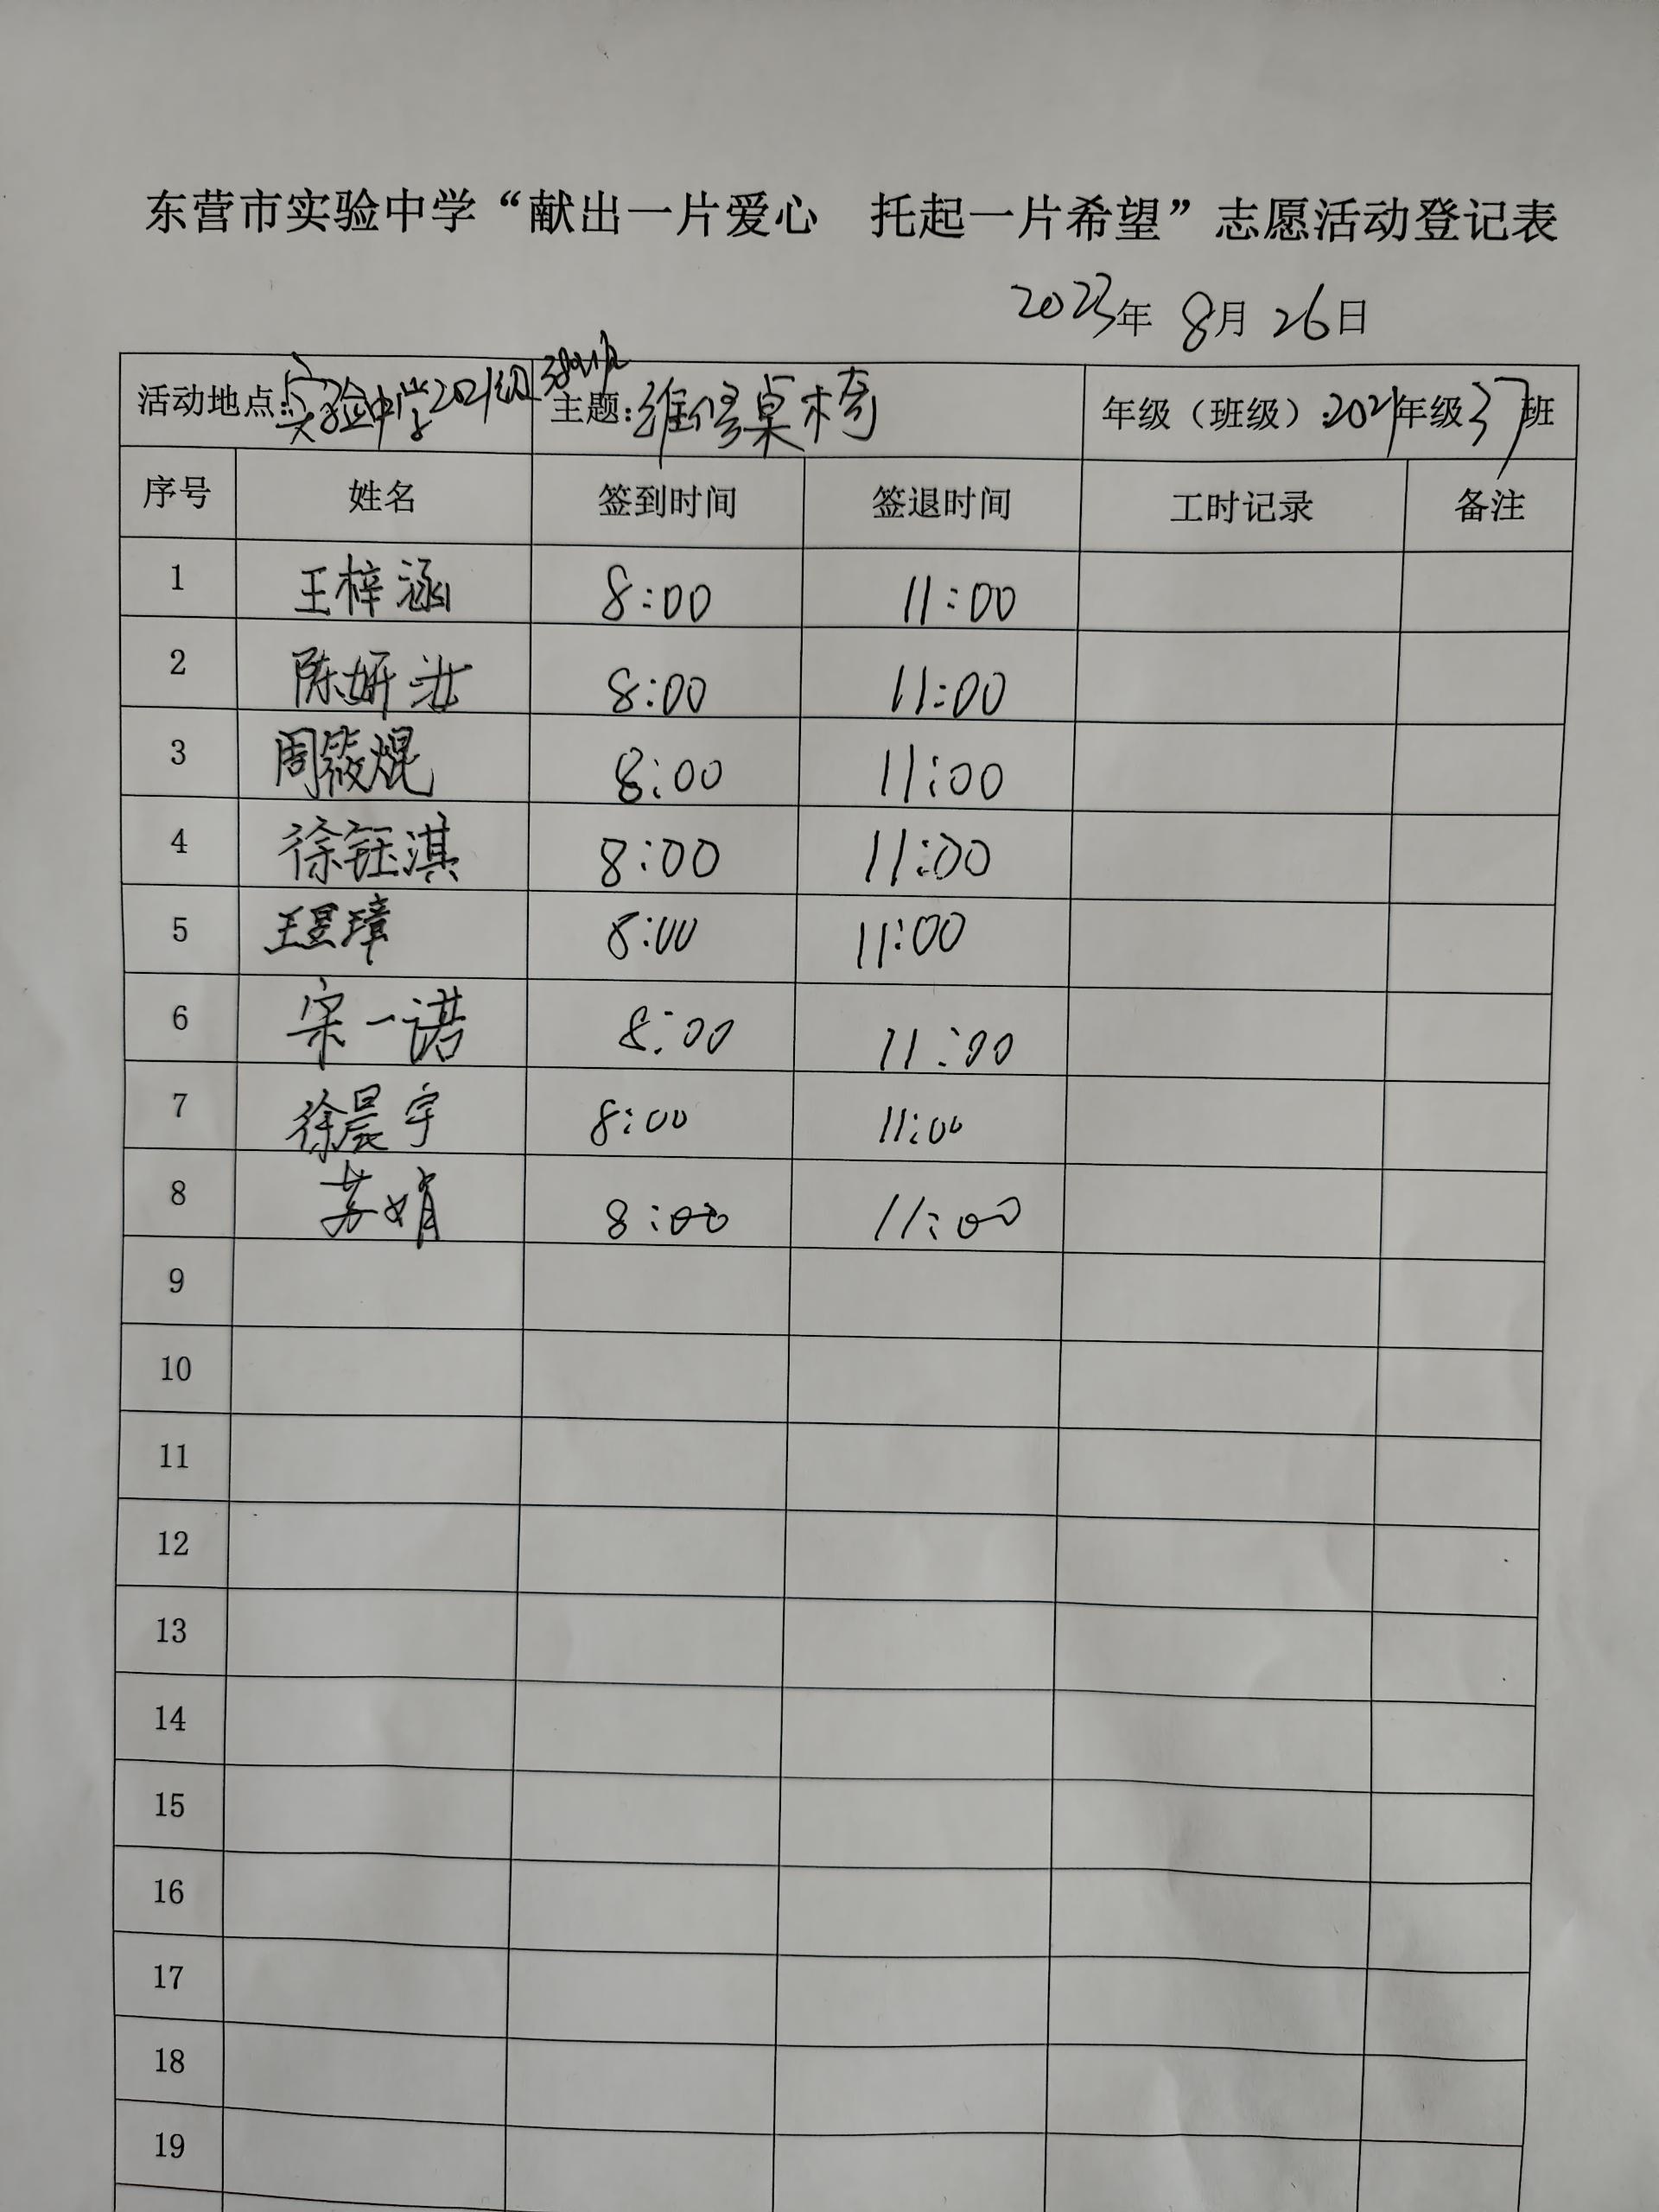 东营市实验中学“献出一片爱心 托起一片希望”志愿活动登记表
2023年 8月 26日
活动地点:实验中学2021级 主题:维修桌椅 年级（班级）:2021年级37班
序号 姓名 签到时间 签退时间 工时记录 备注
1 王梓涵 8:00 11:00
2 陈妍 8:00 11:00
3 周筱焜 8:00 11:00
4 徐钰淇 8:00 11:00
5 王昱璋 8:00 11:00
6 宋一诺 8:00 11:00
7 徐晨宇 8:00 11:00
8 苏娟 8:00 11:00
9
10
11
12
13
14
15
16
17
18
19